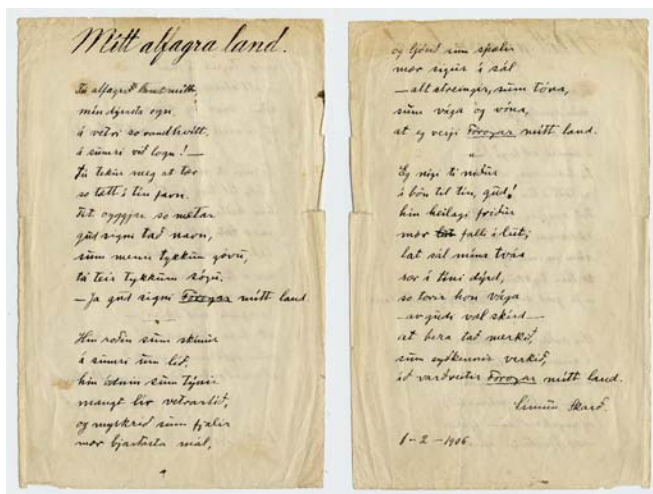 Mítt alfagra land.
Tú alfagra land mítt,
mín dýrasta ogn,
á vetri so randhvítt,
á sumri við logn! —
Tú tekur meg at tær
so tætt í tín favn.
Tit oyggjar so mætar
gud signi tað navn,
sum menn tykkum góvu,
tá teir tykkum sógu.
— Ja gud signi Föroyar mítt land.
Hin roðin sum skinur
á sumri um lið,
hin ódnin sum týnir
mangt lív vetrartíð,
og myrkrið sum fjalir
mær bjartasta mál,
og ljósið sum spælir
mær sigur í sál
— alt streingir, sum tóna,
sum vága og vóna,
at eg verji Föroyar mítt land.
Eg nígi tí niður
í bön til tín, gud!
hin heilagi friður
mær falli í lut;
lat sál mína tváa
sær í tíni dýrd,
so torir hon vága
— av gudi væl skírd —
at bera tað merkið,
sum eyðkennir verkið,
ið varðveitir Föroyar mítt land.
Símun Skarð.
1-2-1906.